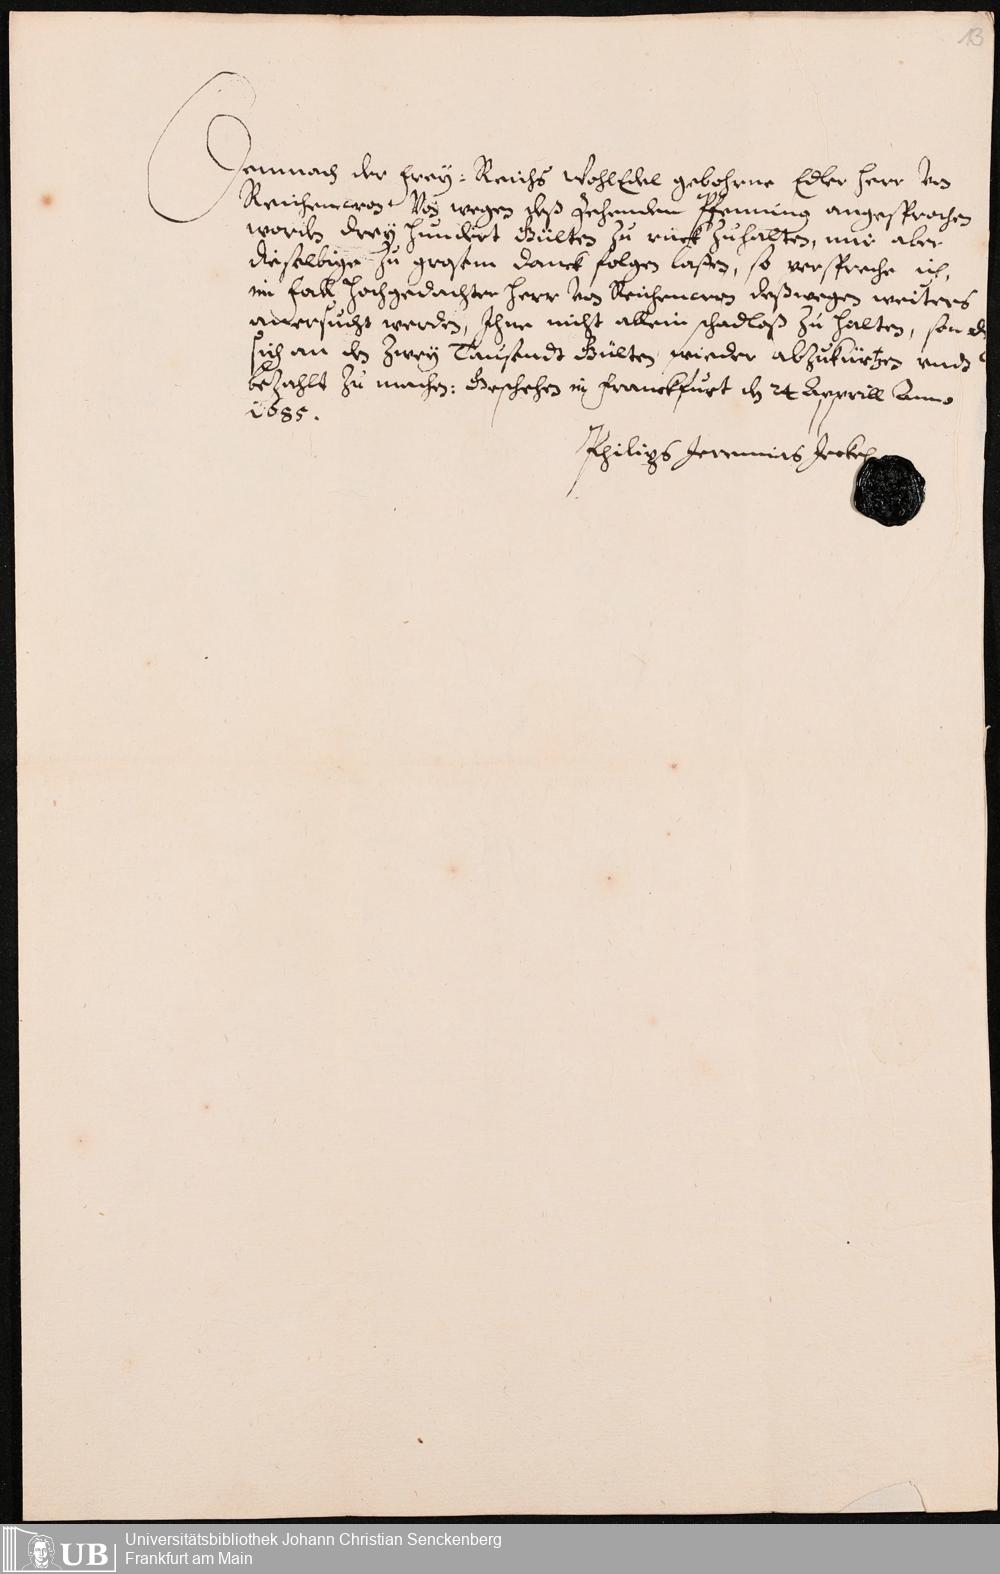 13
Demnach der Frey: Reichs WohlEdel gebohrne Edler Herr Von
Reicheneron Von wegen deß Zehenden Pfenning angesprochen
worden drey hundert Gülten zu rück zuhalten, mir aber
dieselbige zu grosem danck folgen laßen, so verspreche ich,
im fall hochgedachter Herr Von Reicheneron deßwegen weiters
angersucht werden, Ihne nicht allein schadloß zu halten, son
sich an den Zwey Tausendt Gülten wieder abzukürtzen undt
bezahlt zu machen: Geschehen in Franckfurt den 24 Apprill Anno
1685.
Philips Jeremias Jeckel
UB
Universitätsbibliothek Johann Christian Senckenberg
Frankfurt am Main